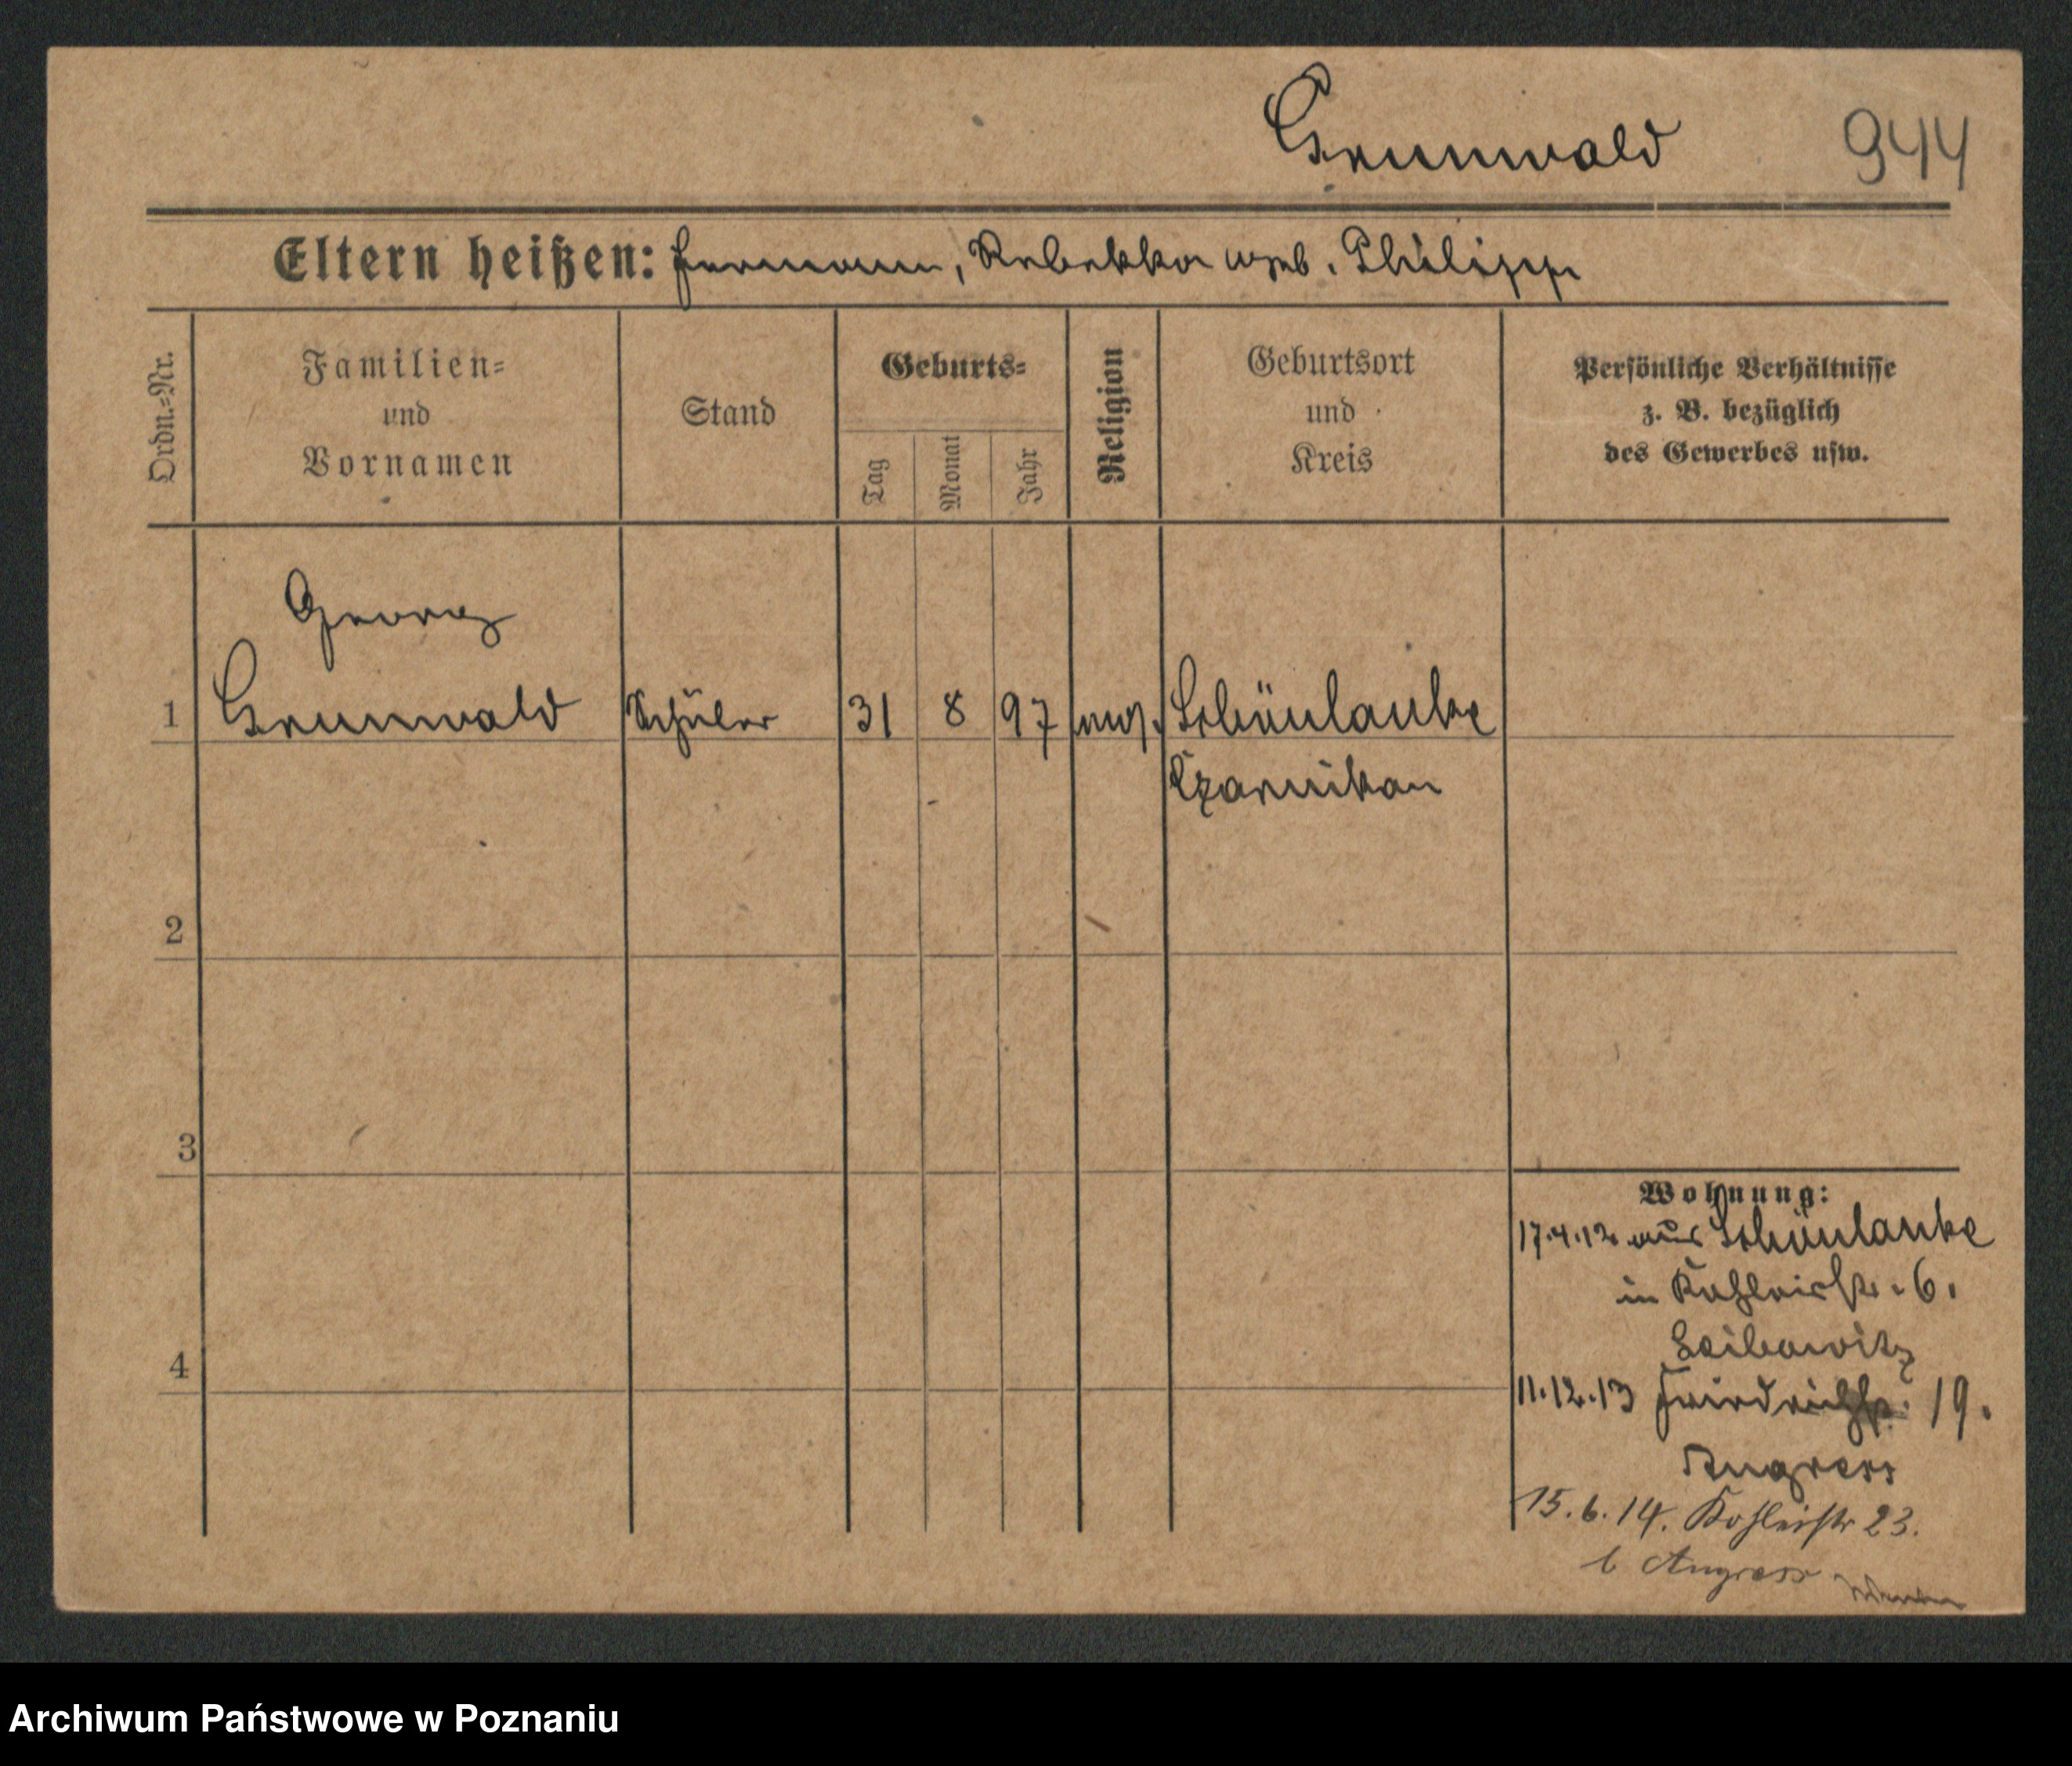 Grunwald
944
Eltern heißen: Hermann, Rebekka geb. Philipp
Ordn.-Nr.
Familien-
und
Vornamen
Stand
Geburts-
Tag
Monat
Jahr
Religion
Geburtsort
und
Kreis
Persönliche Verhältnisse
z. B. bezüglich
des Gewerbes usw.
Georg
1 Grunwald Schüler 31 8 97 Schönlanke
Czarnikau
2
3
4
Wohnung:
17.4.12 aus Schönlanke
in Kohleisstr. 6.
Leibowitz
11.12.13 Friedrichstr. 19.
Angress
15.6.14. Kohleisstr 23.
b Angress
Archiwum Państwowe w Poznaniu